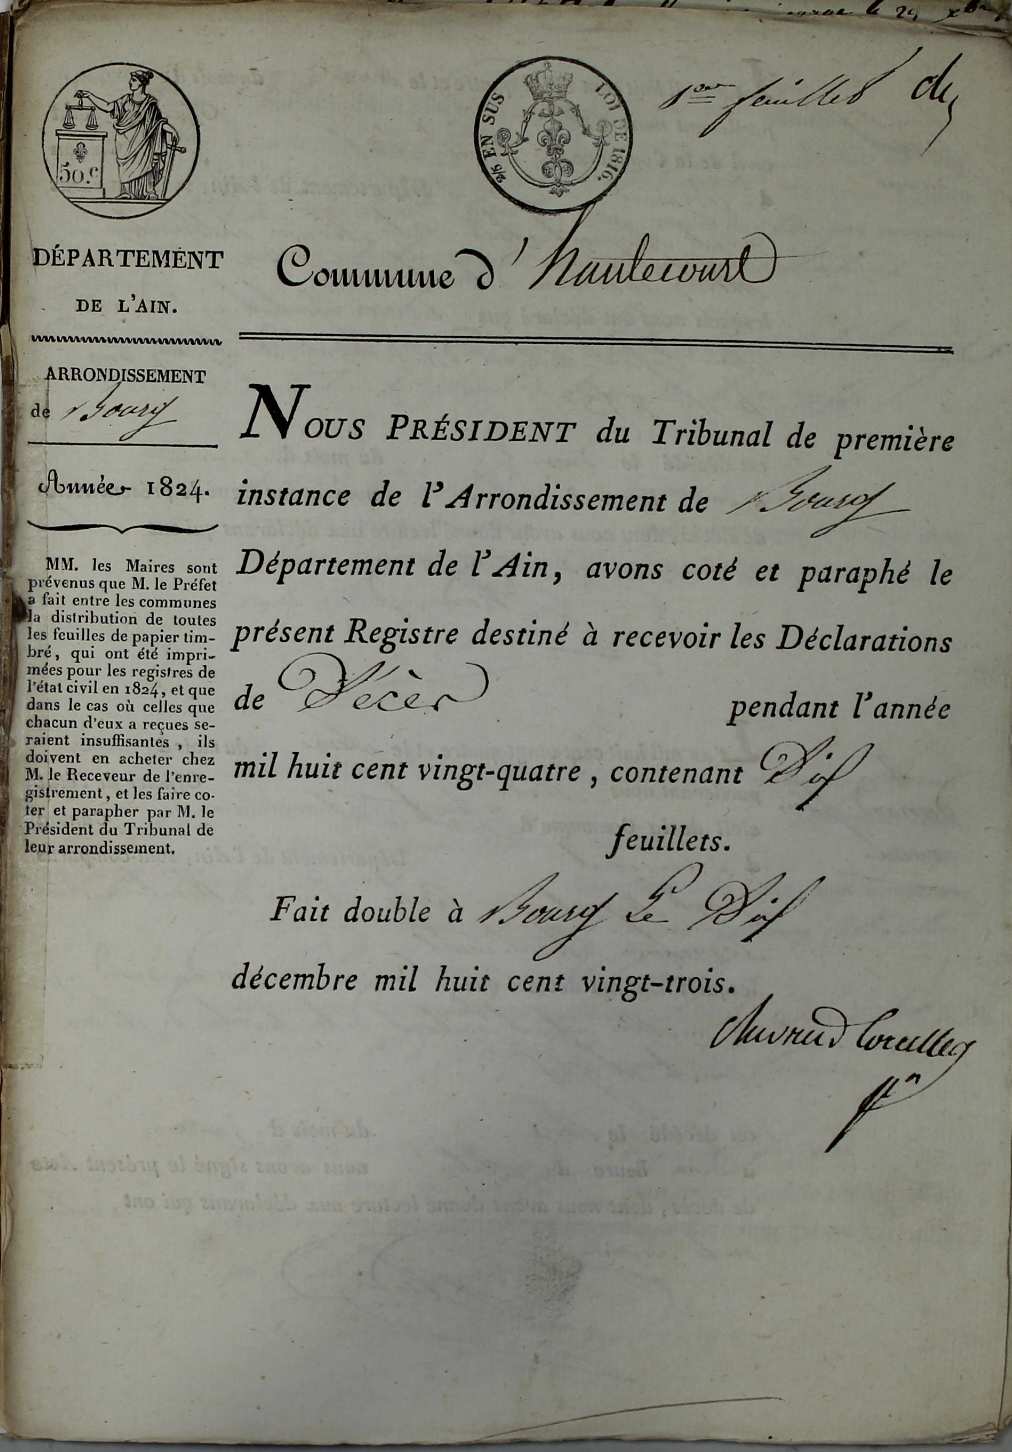 50.c
2/5 EN SUS
LOI DE 1816.
1er feuillet
DÉPARTEMENT
DE L'AIN.
Commune d' hautecourt
ARRONDISSEMENT
de Bourg
Année 1824.
MM. les Maires sont
prévenus que M. le Préfet
a fait entre les communes
la distribution de toutes
les feuilles de papier tim-
bré, qui ont été impri-
mées pour les registres de
l'état civil en 1824, et que
dans le cas où celles que
chacun d'eux a reçues se-
raient insuffisantes, ils
doivent en acheter chez
M. le Receveur de l'enre-
gistrement, et les faire co-
ter et parapher par M. le
Président du Tribunal de
leur arrondissement.
NOUS PRÉSIDENT du Tribunal de première
instance de l'Arrondissement de Bourg
Département de l'Ain, avons coté et paraphé le
présent Registre destiné à recevoir les Déclarations
de Décès pendant l'année
mil huit cent vingt-quatre, contenant Dix
feuillets.
Fait double à Bourg Le Dix
décembre mil huit cent vingt-trois.